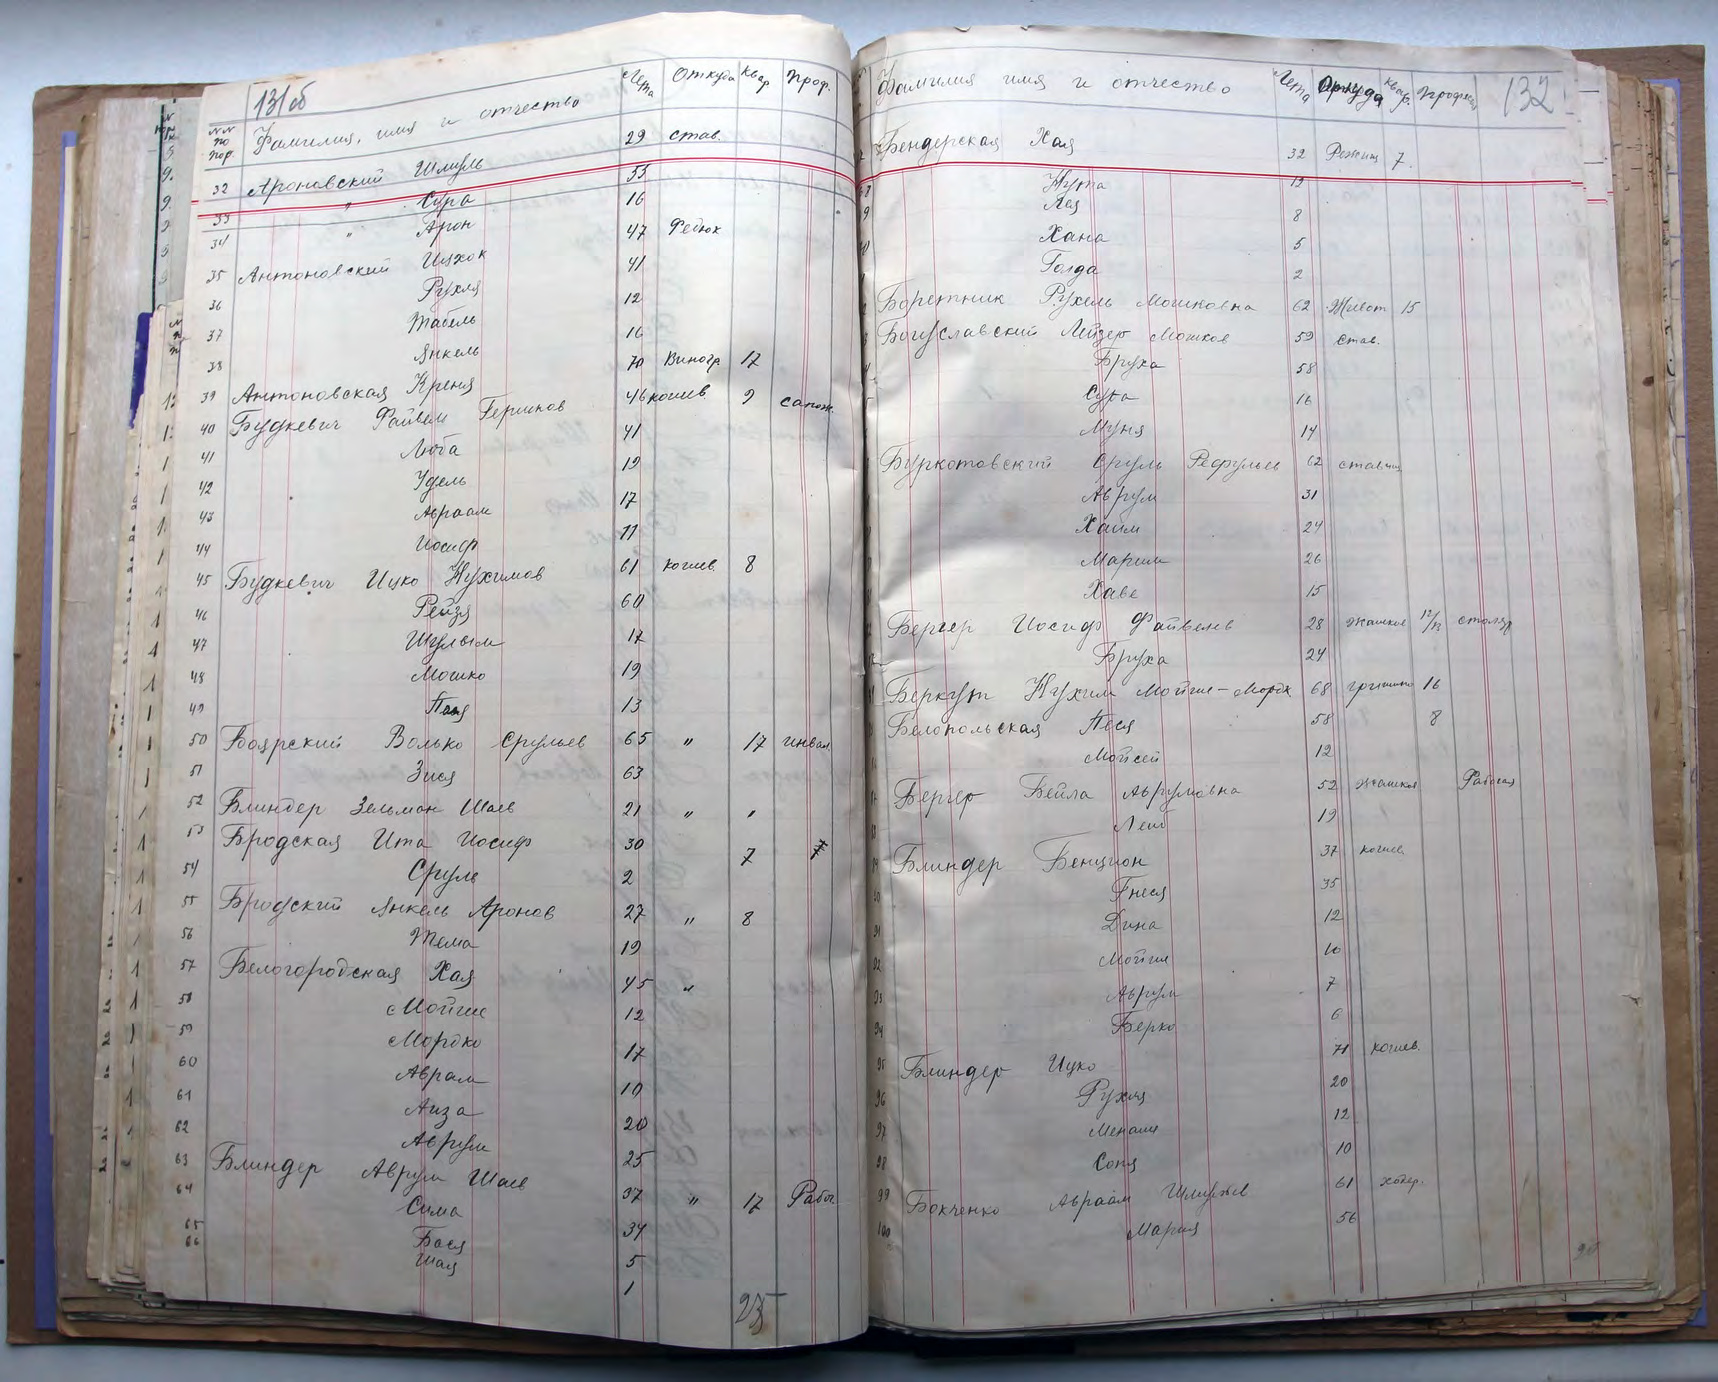 131об
NN по пор. Фамилия, имя и отчество Лета Откуда Квар. Проф.
32 Ароновский Шмуль 29 став.
33 " Сура 55
34 " Арон 16
35 Антоновский Ицхок 47 Федюк
36 Рухля 41
37 Табель 12
38 Янкель 16
39 Антоновская Креня 70 Виногр. 17
40 Будкевич Файвель Гершков 46 кошев. 9 сапож.
41 Люба 41
42 Удель 19
43 Авраам 17
44 Иосиф 11
45 Будкевич Ицко Нухимов 61 кошев. 8
46 Рейзя 60
47 Шулым 17
48 Мошко 19
49 Поля 13
50 Боярский Волько Срульев 65 " 17 инвал.
51 Зися 63
52 Блиндер Зельман Шаев 21 " "
53 Бродская Ита Иосиф 30 7
54 Сруль 2
55 Бродский Янкель Аронов 27 " 8
56 Тема 19
57 Белогородская Хая 45 "
58 Мойше 12
59 Мордко 17
60 Аврам 10
61 Лиза 20
62 Аврум 25
63 Блиндер Аврум Шаев 37 " 17 Рабоч
64 Сима 34
65 Бася 5
66 Шая 1
23
132
Фамилия имя и отчество Лета Откуда квар. Професия
Бендерская Хая 32 Режищ 7.
Нута 13
Лея 8
Хана 5
Голда 2
Боретник Рухель Мошковна 62 Живот 15
Богуславский Лейзер Мошков 59 став.
Бруха 58
Сура 16
Муня 14
Буркотовский Сруль Рефульев 62 ставищ
Аврум 31
Хаим 24
Мариам 26
Хаве 15
Бергер Иосиф Файвелев 28 жашков 12/13 столяр
Бруха 24
Беркут Нухим Мойше-Мордк 68 гришино 16
Белопольская Песя 58 8
Мойсей 12
Бергер Бейла Аврумовна 52 жашков Рабочая
Лейб 19
Блиндер Бенцион 37 кошев
90 Гнеся 35
91 Дина 12
92 Мойше 10
93 Аврум 7
94 Берко 6
95 Блиндер Ицко 71 кошев.
96 Рухля 20
97 Менаше 12
98 Соня 10
99 Бокченко Авраам Шмулев 61 ходор.
100 Мария 56